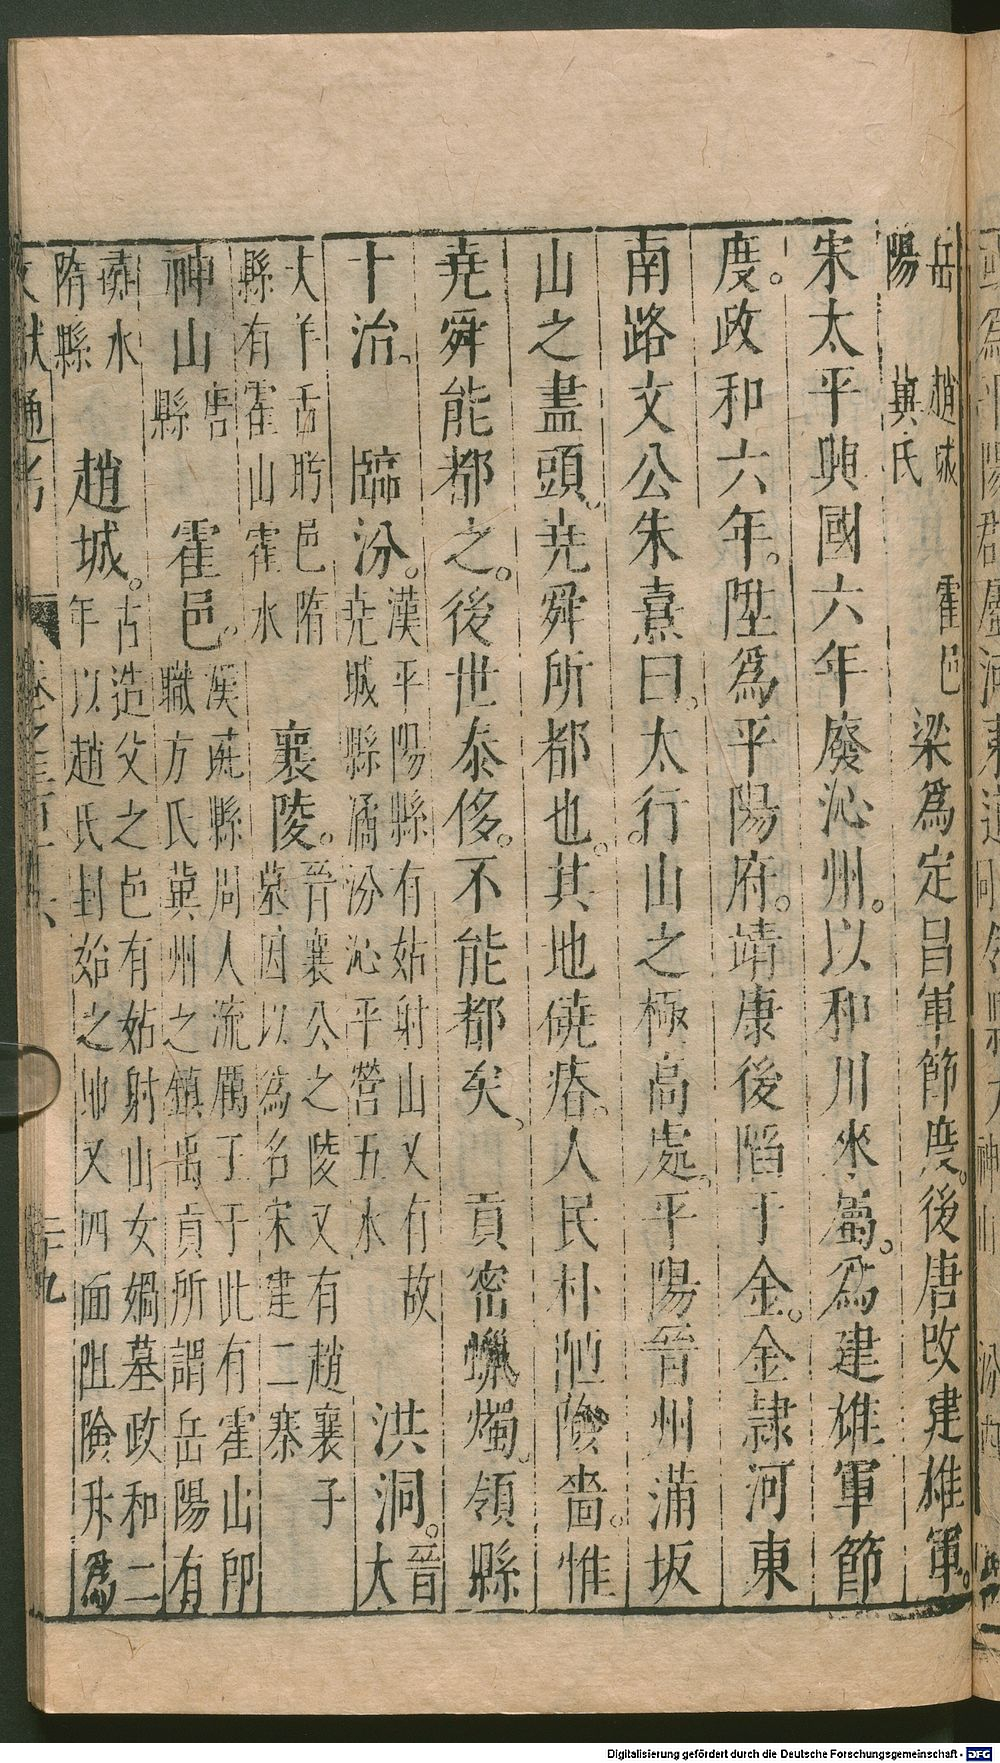 岳陽 趙城冀氏 霍邑 梁爲定昌軍節度。後唐改建雄軍。
宋太平興國六年廢沁州。以和川來屬。爲建雄軍節
度。政和六年。陞爲平陽府。靖康後陷于金。金隷河東
南路文公朱熹曰。太行山之極高處。平陽晉州蒲坂
山之盡頭。堯舜所都也。其地磽瘠。人民朴陋險嗇。惟
堯舜能都之。後世泰侈。不能都矣、 貢密蠟燭。領縣
十治。 臨汾。漢平陽縣有姑射山又有故堯城縣潏汾沁平營五水 洪洞。晉大
大羊舌肸邑隋縣有霍山霍水 襄陵。晉襄公之陵又有趙襄子墓因以爲名宋建二寨
神山唐縣 霍邑。漢彘縣周人流厲王于此有霍山卽職方氏冀州之鎮禹貢所謂岳陽有
彘水隋縣 趙城。古造父之邑有姑射山女媧墓政和二年以趙氏封始之地又四面阻險升爲
文獻通考 卷之三百十六 二十九
Digitalisierung gefördert durch die Deutsche Forschungsgemeinschaft - DFG